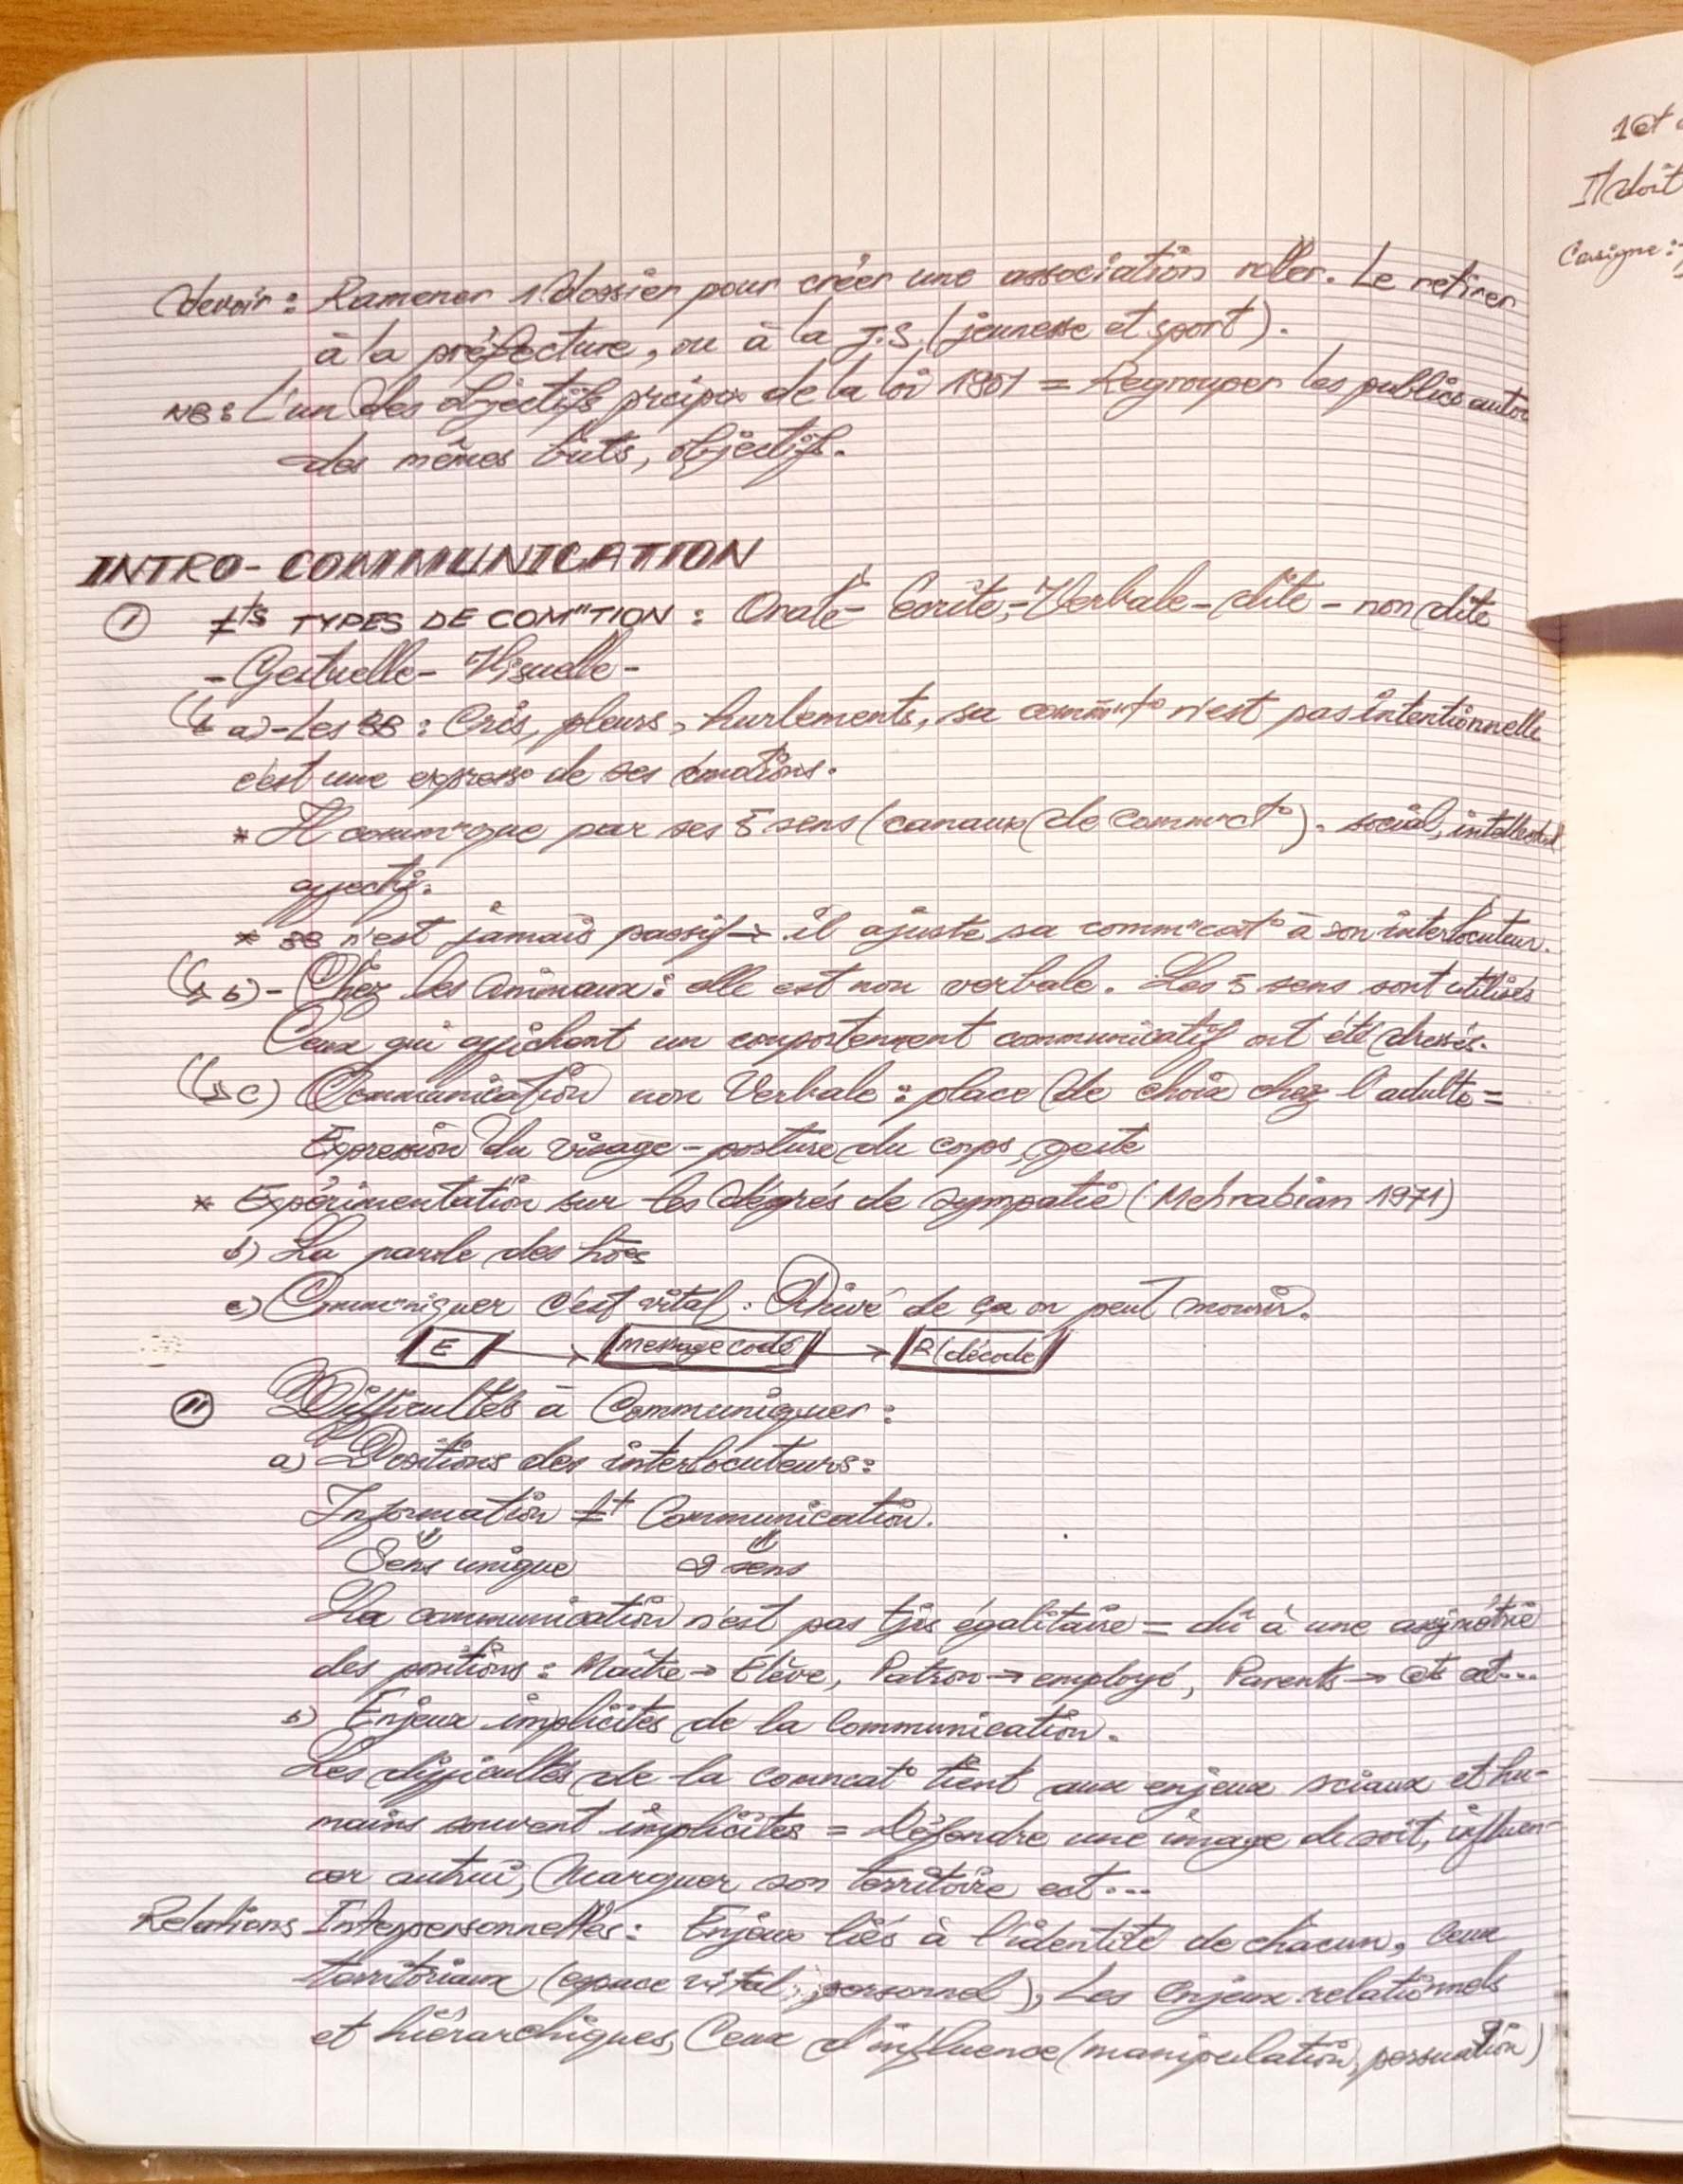 devoir : Ramener 1 dossier pour créer une association roller. Le retirer
à la préfecture, ou à la J.S. (jeunesse et sport).
NB : L'un des objectifs de la loi 1901 = Regrouper les publics autou
des mêmes buts, objectifs.
INTRO - COMMUNICATION
I ≠ts TYPES DE COMºTION : Orale - Ecrite - Verbale - dite - non dite
- Gestuelle - Visuelle -
↳ a) - Les BB : Cris, pleurs, hurlements, sa n'est pas intentionnelle
c'est une expresso de ses émotions.
* Il comm"que par ses 5 sens (canaux de commct°). social, intellectuel
affectif.
* BB n'est jamais passif → il ajuste sa comm"cat° à son interlocuteur.
↳ b) - Chez les Animaux : elle est non verbale. Les 5 sens sont utilisés
Ceux qui affichent un comportement communicatif ont été dressés.
↳ c) Communication non Verbale : place de choix chez l'adulte =
Expression du visage - posture du corps, geste
* Expérimentation sur les dégrés de sympatie (Mehrabian 1971)
b) La parole des hões
c) Comm"niquer c'est vital. Privé de ça on peut mourir.
E → message codé → R (décode)
II Difficultés à Communiquer :
a) Positions des interlocuteurs :
Information ≠t Communication.
" "
Sens unique 2 sens
La communication n'est pas tjrs égalitaire = dû à une asymétrie
des positions : Maître → Elève, Patron → employé, Parents → ect...
b) Enjeux implicites de la communication.
Les difficultés de la comncat° tient aux enjeux sciaux et hu-
mains souvent implicites = Défendre une image de soit, influen-
cer autrui, Marquer son territoire ect...
Relations Interpersonnelles : Enjeux liés à l'identité de chacun, Ceux
territoriaux (espace vital, personnel), Les Enjeux relationnels
et hiérarchiques, Ceux d'influence (manipulation, persuation)
1 et
Il doit
Casigne :